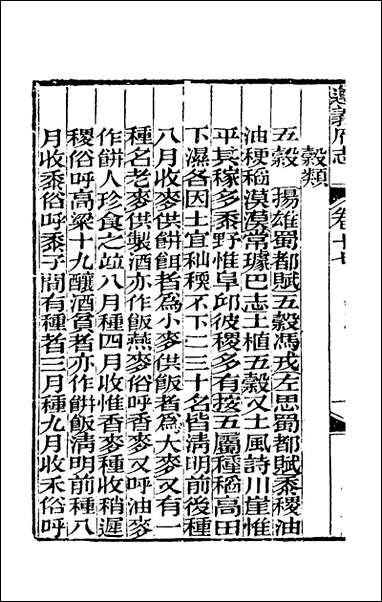 遵義府志 卷十七
穀類
五穀 揚雄蜀都賦五穀馮戎左思蜀都賦黍稷油
油稉稻漠漠常璩巴志土植五穀又土風詩川崖惟
平其稼多黍野惟阜邱彼稷多有按五屬種稻高田
下濕各因土宜秈稬不下二三十名皆淸明前後種
八月收麥供餅餌者為小麥供飯者為大麥又有一
種名老麥供製酒亦作飯燕麥俗呼香麥又呼油麥
作餅人珍食之竝八月種四月收惟香麥種收稍遲
稷俗呼高粱十九釀酒貧者亦作餅飯淸明前種八
月收黍俗呼黍子間有種者三月種九月收禾俗呼